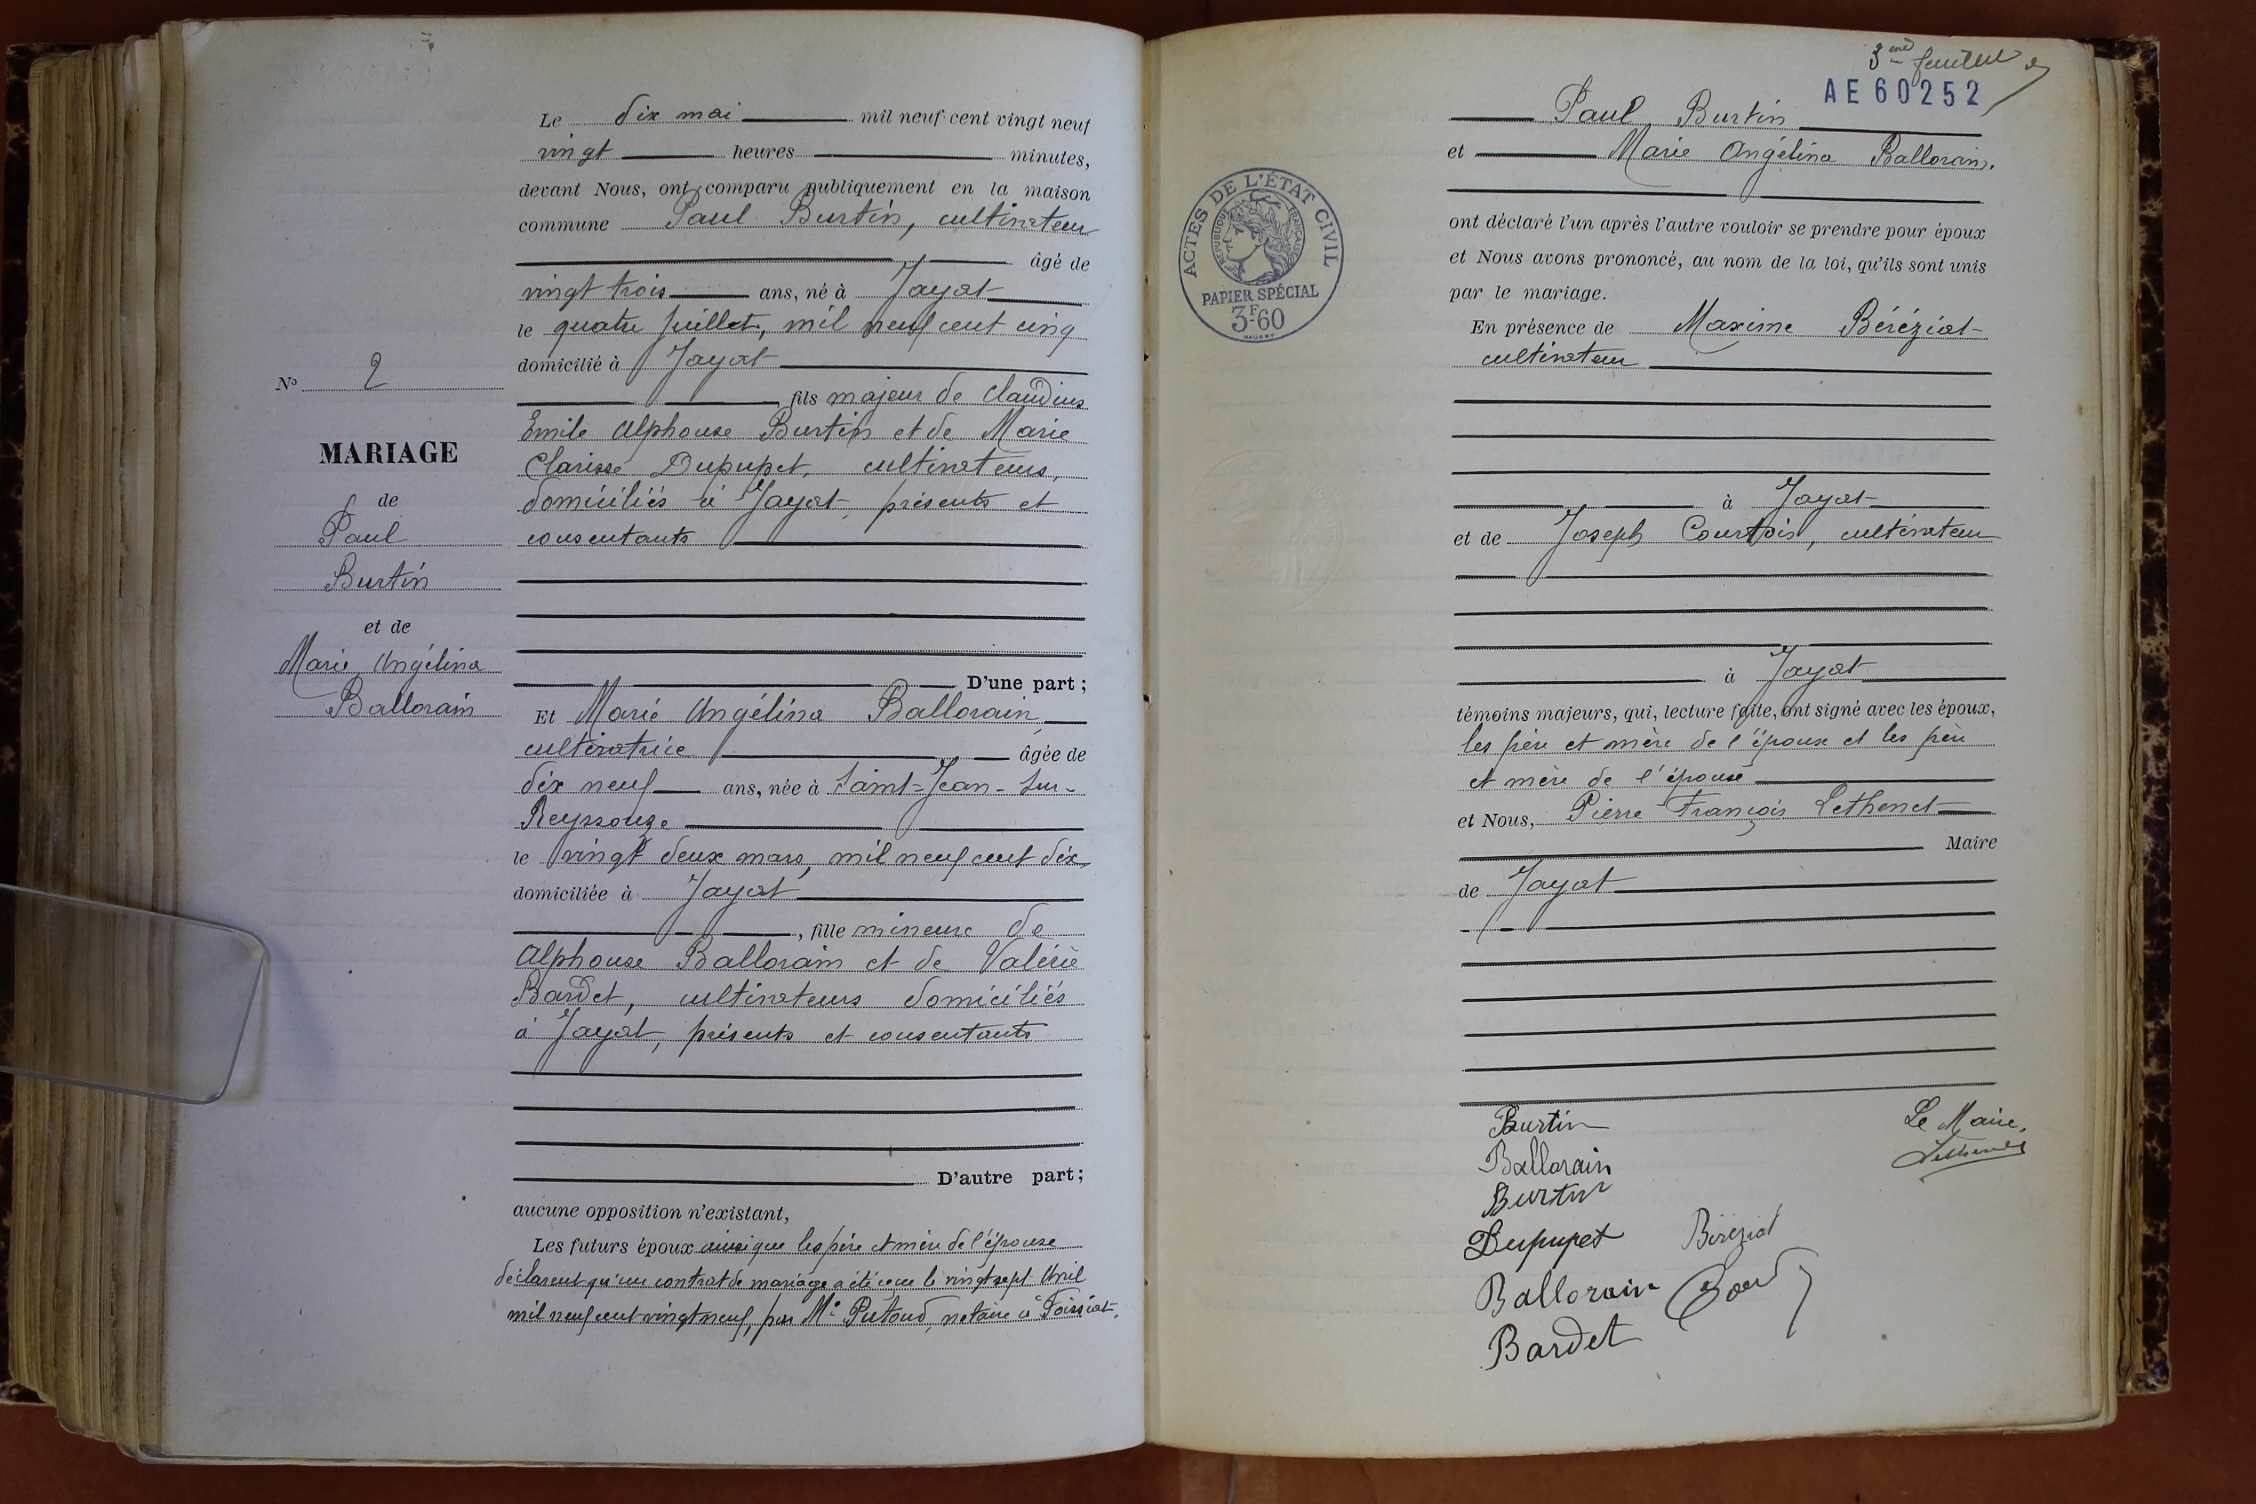 Le dix mai mil neuf cent vingt neuf
vingt heures minutes,
devant Nous, ont comparu publiquement en la maison
commune Paul Burtin, cultivateur
âgé de
vingt trois ans, né à Jayat
le quatre juillet, mil neuf cent cinq
domicilié à Jayat
fils majeur de Claudius
Emile Alphonse Burtin et de Marie
Clarisse Dupupet, cultivateurs,
domiciliés à Jayat, présents et
consentants
D'une part ;
Et Marie Angélina Ballorain,
cultivatrice âgée de
dix neuf ans, née à Saint-Jean-sur-
Reyssouze
le vingt deux mars, mil neuf cent dix
domiciliée à Jayat
, fille mineure de
Alphonse Ballorain et de Valérie
Bardet, cultivateurs domiciliés
à Jayat, présents et consentants
D'autre part ;
aucune opposition n'existant,
Les futurs époux ainsi que les père et mère de l'épouse
déclarent qu'un contrat de mariage a été reçu le vingt sept Avril
mil neuf cent vingt neuf, par Me Putoud, notaire à Foissiat.
No 2
MARIAGE
de
Paul
Burtin
et de
Marie Angélina
Ballorain
3ème feuillet
AE60252
Paul Burtin
et Marie Angélina Ballorain,
ont déclaré l'un après l'autre vouloir se prendre pour époux
et Nous avons prononcé, au nom de la loi, qu'ils sont unis
par le mariage.
En présence de Maxime Béréziat
cultivateur
à Jayat
et de Joseph Courtois, cultivateur
à Jayat
témoins majeurs, qui, lecture faite, ont signé avec les époux,
les père et mère de l'époux et les père
et mère de l'épouse
et Nous, Pierre François Lethenet
Maire
de Jayat
ACTES DE L'ÉTAT CIVIL
RÉPUBLIQUE FRANÇAISE
PAPIER SPÉCIAL
3F-60
Burtin
Ballorain
Burtin
Dupupet
Béréziat
Ballorain
Bardet
Le Maire,
Lethenet